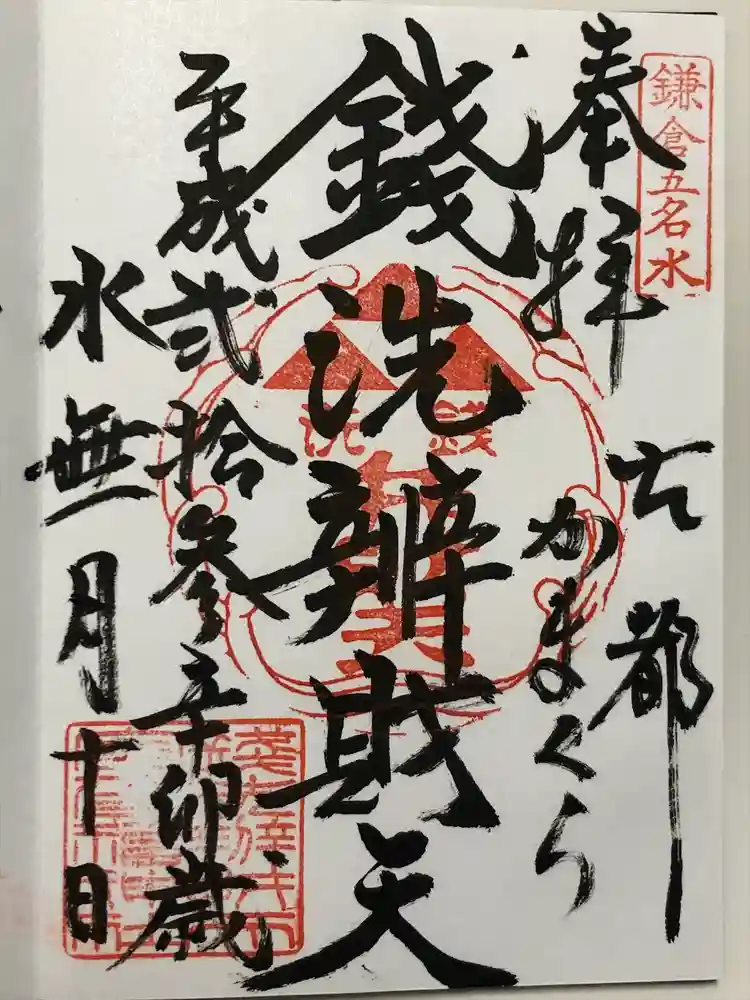 鎌倉五名水
奉拝
古都
かまくら
錢洗辨財天
銭洗
平成弐拾参辛卯歳
水無月十日